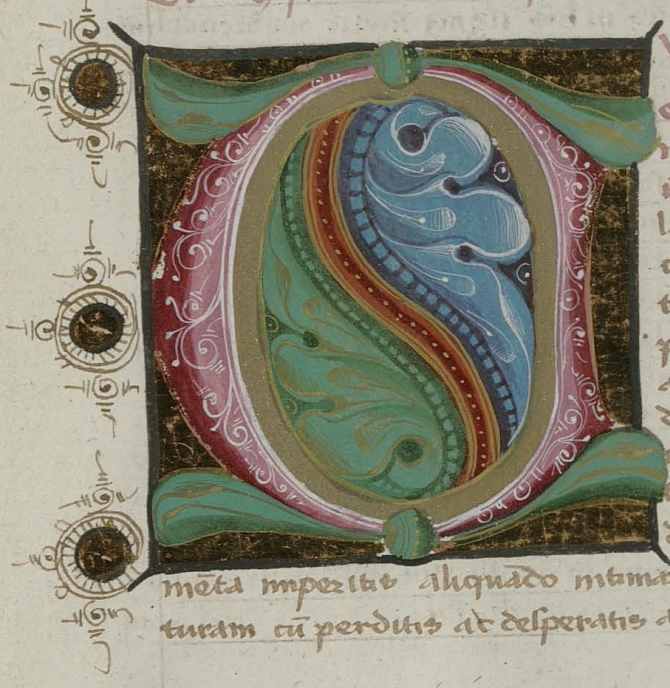 mẽta imperitis aliquãdo intima
turam cũ perditis ac desperatis a